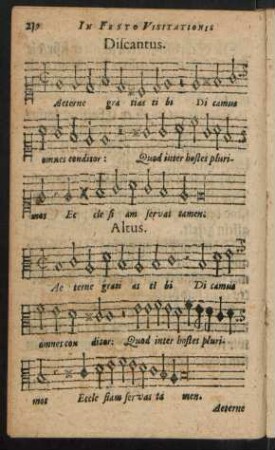 IN FESTO VISITATIONIS
Discantus.
Aeterne gra tias ti bi Di camus
omnes conditor: Quod inter hostes pluri-
mos Ec cle si am servat tamen.
Altus.
Ae terne grati as ti bi Di camus
omnes con ditor: Quod inter hostes pluri-
mos Eccle siam servas ta men.
Aeterne